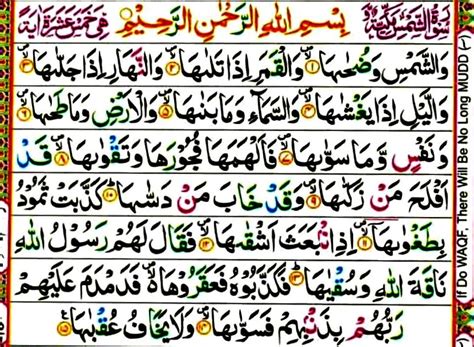 سُوْرَةُ الشَّمْسِ مَكِّيَّةٌ بِسْمِ اللهِ الرَّحْمٰنِ الرَّحِيْمِ هِيَ خَمْسَ عَشَرَةَ اٰيَةً
وَالشَّمْسِ وَضُحٰىهَا ۱ وَالْقَمَرِ اِذَا تَلٰىهَا ۲ وَالنَّهَارِ اِذَا جَلّٰىهَا ۳
وَالَّيْلِ اِذَا يَغْشٰىهَا ۴ وَالسَّمَآءِ وَمَا بَنٰىهَا ۵ وَالْاَرْضِ وَمَا طَحٰىهَا ۶
وَنَفْسٍ وَّمَا سَوّٰىهَا ۷ فَاَلْهَمَهَا فُجُوْرَهَا وَتَقْوٰىهَا ۸ قَدْ
اَفْلَحَ مَنْ زَكّٰىهَا ۹ وَقَدْ خَابَ مَنْ دَسّٰىهَا ۱۰ كَذَّبَتْ ثَمُوْدُ
بِطَغْوٰىهَا ۱۱ اِذِ انْۢبَعَثَ اَشْقٰىهَا ۱۲ فَقَالَ لَهُمْ رَسُوْلُ اللهِ
نَاقَةَ اللهِ وَسُقْيٰهَا ۱۳ فَكَذَّبُوْهُ فَعَقَرُوْهَا فَدَمْدَمَ عَلَيْهِمْ
رَبُّهُمْ بِذَنْۢبِهِمْ فَسَوّٰىهَا ۱۴ وَلَا يَخَافُ عُقْبٰهَا ۱۵
If Do WAQF, There Will Be No Long MUDD (-)